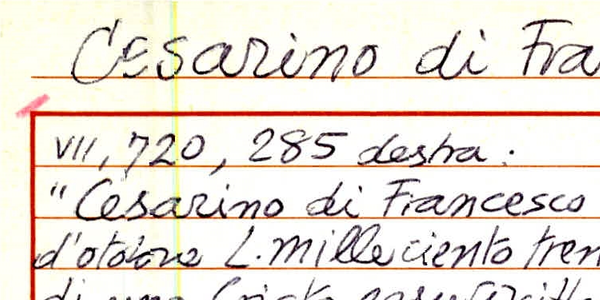 Cesarino di Fra
VII, 720, 285 destra.
"Cesarino di Francesco
d'ottobre L. mille ciento tren
di una